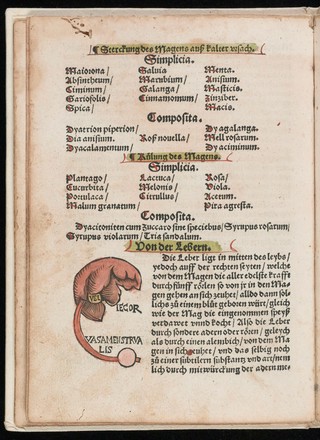 ¶ Sterckung des Magens auß kalter vrsach.
Simplicia.
Maiorona/ Saluia Menta.
Absintheum/ Marubium/ Anisium.
Ciminum/ Galanga/ Masticis.
Gariofolis/ Cinnamomum/ Zinziber.
Spica/ Macis.
Composita.
Dyatrion piperion/ Dyagalanga.
Dia anisium. Roß nouella/ Mell rosarum.
Dyacalamentum/ Dyaciminum.
¶ Külung des Magens.
Simplicia.
Plantago/ Lactuca/ Rosa/
Cucurbita/ Melonis/ Viola.
Portulaca/ Citrullus/ Acetum.
Malum granatum/ Pira agresta.
Composita.
Dyacitoniten cum zuccaro sine speciebus/ Syrupus rosarum/
Syrupus violarum/ Tria sandalum.
Von der Lebern.
Die Leber ligt in mitten des leybs/
yedoch auff der rechten seyten/ welche
von dem Magen die aller edelste krafft
durch fünff rörlen so von jr in den Ma-
gen gehen an sich zeuhet/ alldo dann söl-
lichs zu einem blüt geboren würt/ gleych
wie der Mag die eingenommen speyß
verdawet vnnd kocht/ Also die Leber
durch sondere adern oder rören/ geleych
als durch einen alembich/ von dem Ma
gen in sich zeuhet/ vnd das selbig noch
zu einer subtilern substantz vnd art/ nem
lich durch mitwürckung der adern me-
IECOR
VASA MENSTRVA
LIS